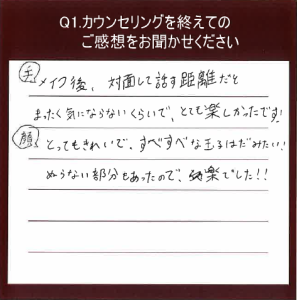 Q1.カウンセリングを終えての
ご感想をお聞かせください
手 メイク後、対面して話す距離だと
まったく気にならないくらいで、とても楽しかったです!
顔 とってもきれいで、すべすべな玉子はだみたい!
ぬらない部分もあったので、楽でした!!